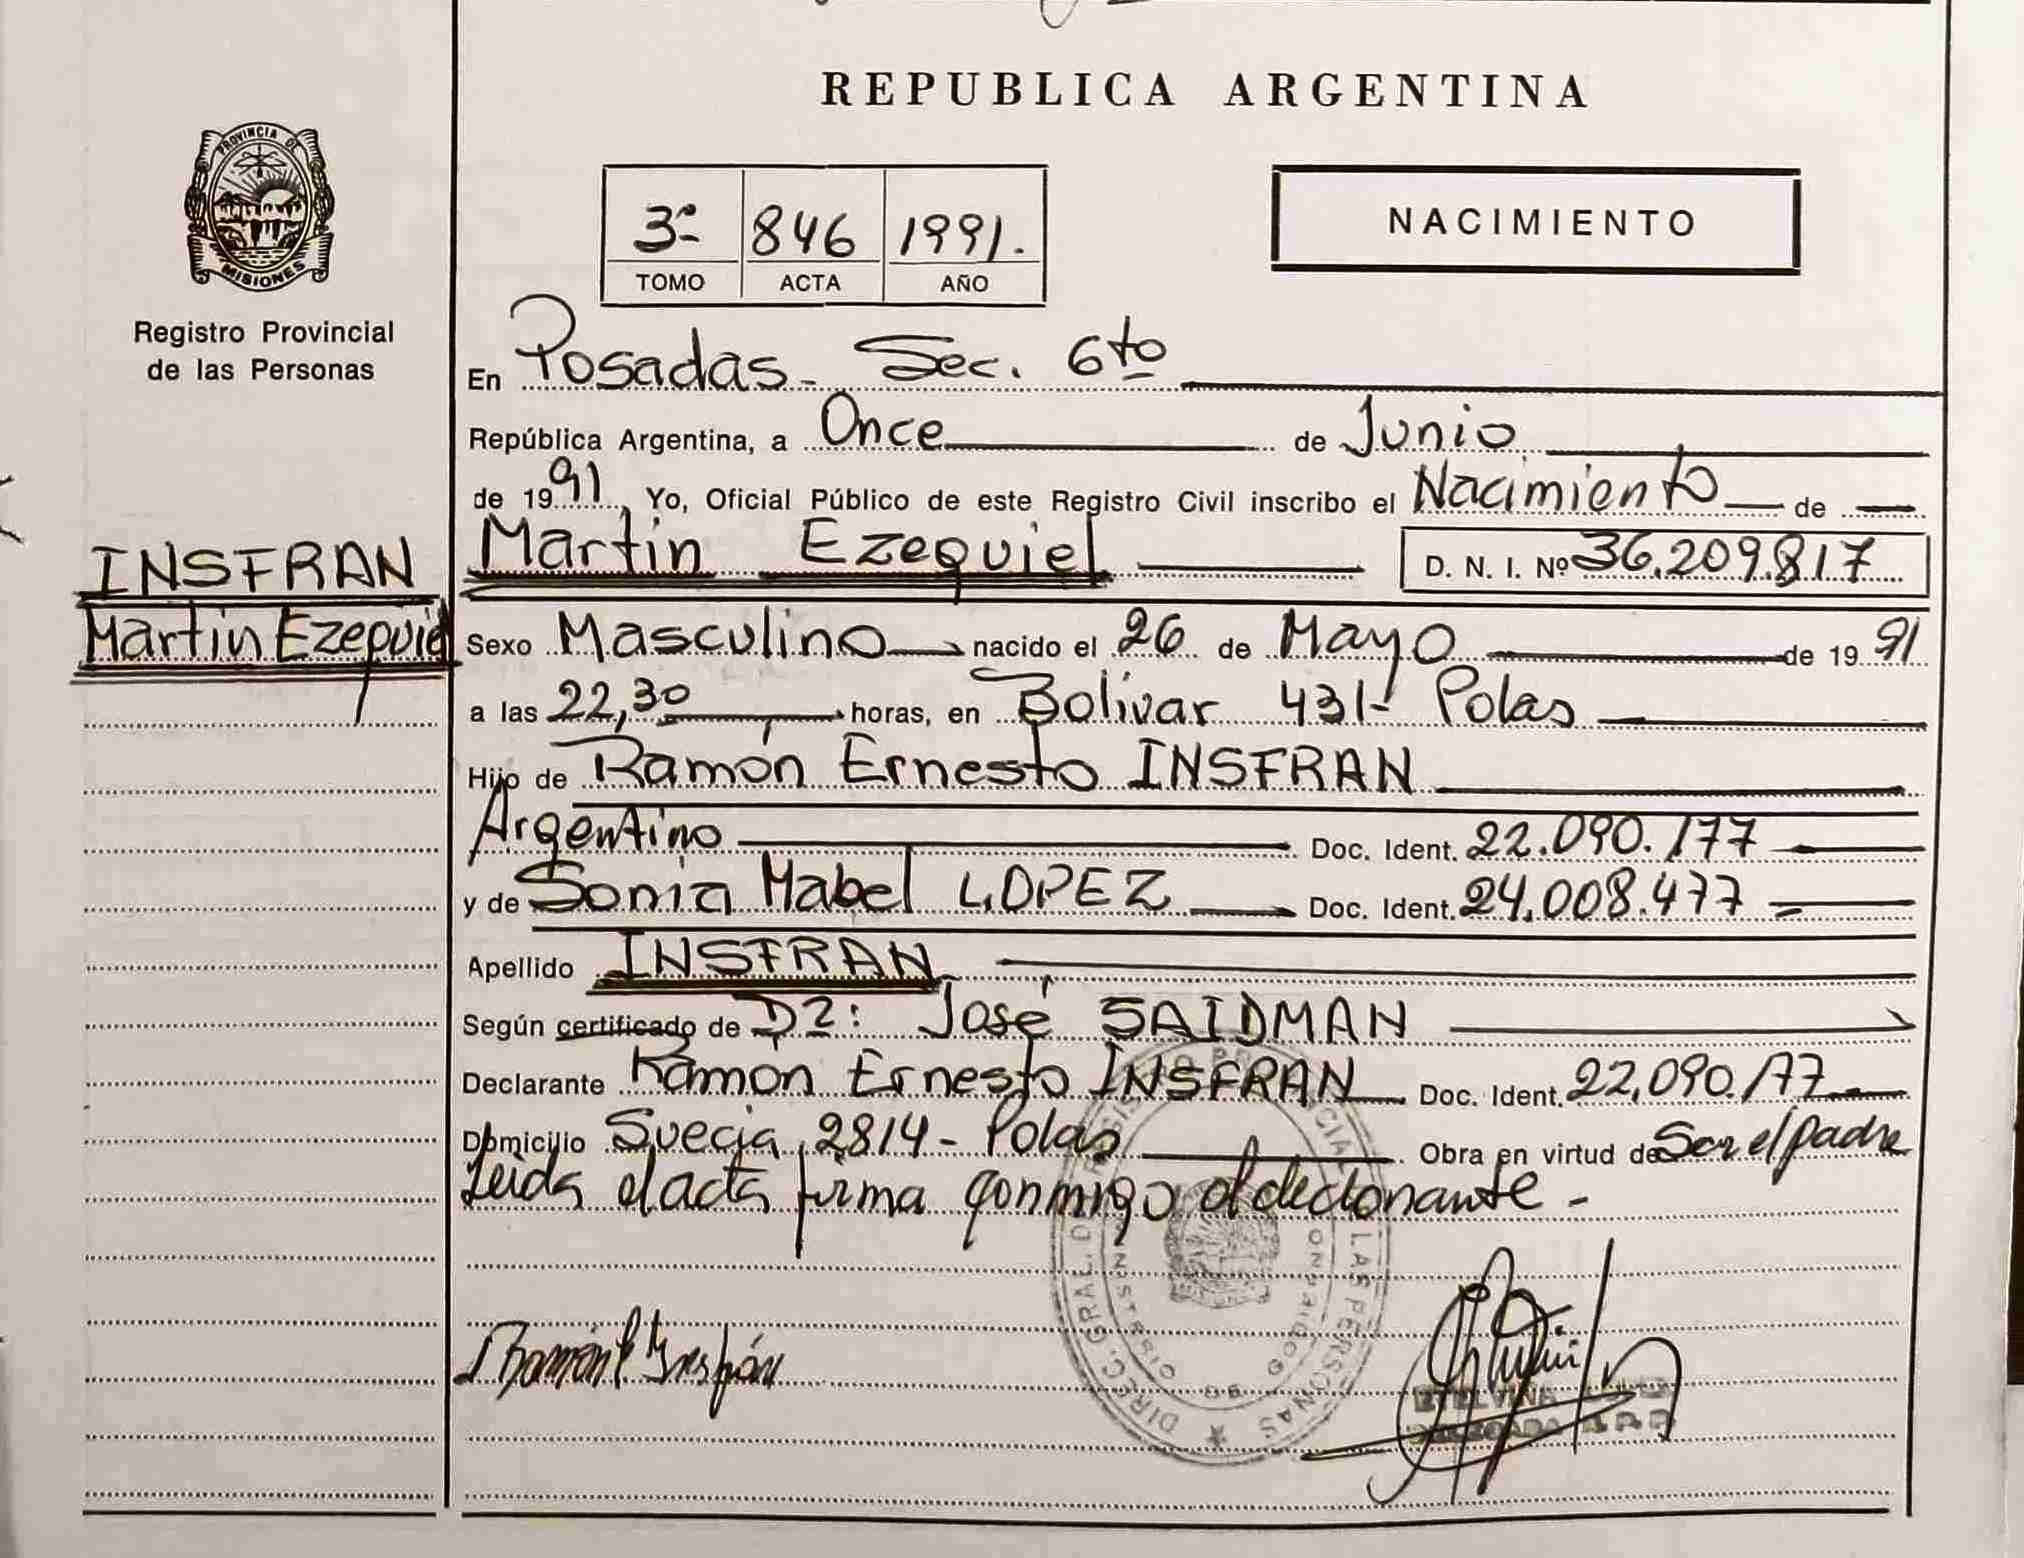 REPUBLICA ARGENTINA
PROVINCIA DE
MISIONES
Registro Provincial
de las Personas
3º 846 1991.
TOMO ACTA AÑO
NACIMIENTO
En Posadas - Sec. 6to
República Argentina, a Once de Junio
de 1991, Yo, Oficial Público de este Registro Civil inscribo el Nacimiento de
Martin Ezequiel D. N. I. Nº 36.209.817
INSFRAN
Martin Ezequiel
Sexo Masculino nacido el 26 de Mayo de 1991
a las 22,30 horas, en Bolivar 431- Pdas
Hijo de Ramón Ernesto INSFRAN
Argentino Doc. Ident. 22.090.177
y de Sonia Mabel LOPEZ Doc. Ident. 24.008.477
Apellido INSFRAN
Según certificado de Dr: José SAIDMAN
Declarante Ramón Ernesto INSFRAN Doc. Ident. 22,090.177
Domicilio Suecia 2814 - Pdas Obra en virtud de Ser el padre
Leida el acta firma conmigo el declarante -
DIREC. GRAL. DE REGISTRO PROVINCIAL LAS PERSONAS
Ramón E Insfrán
ETELVINA